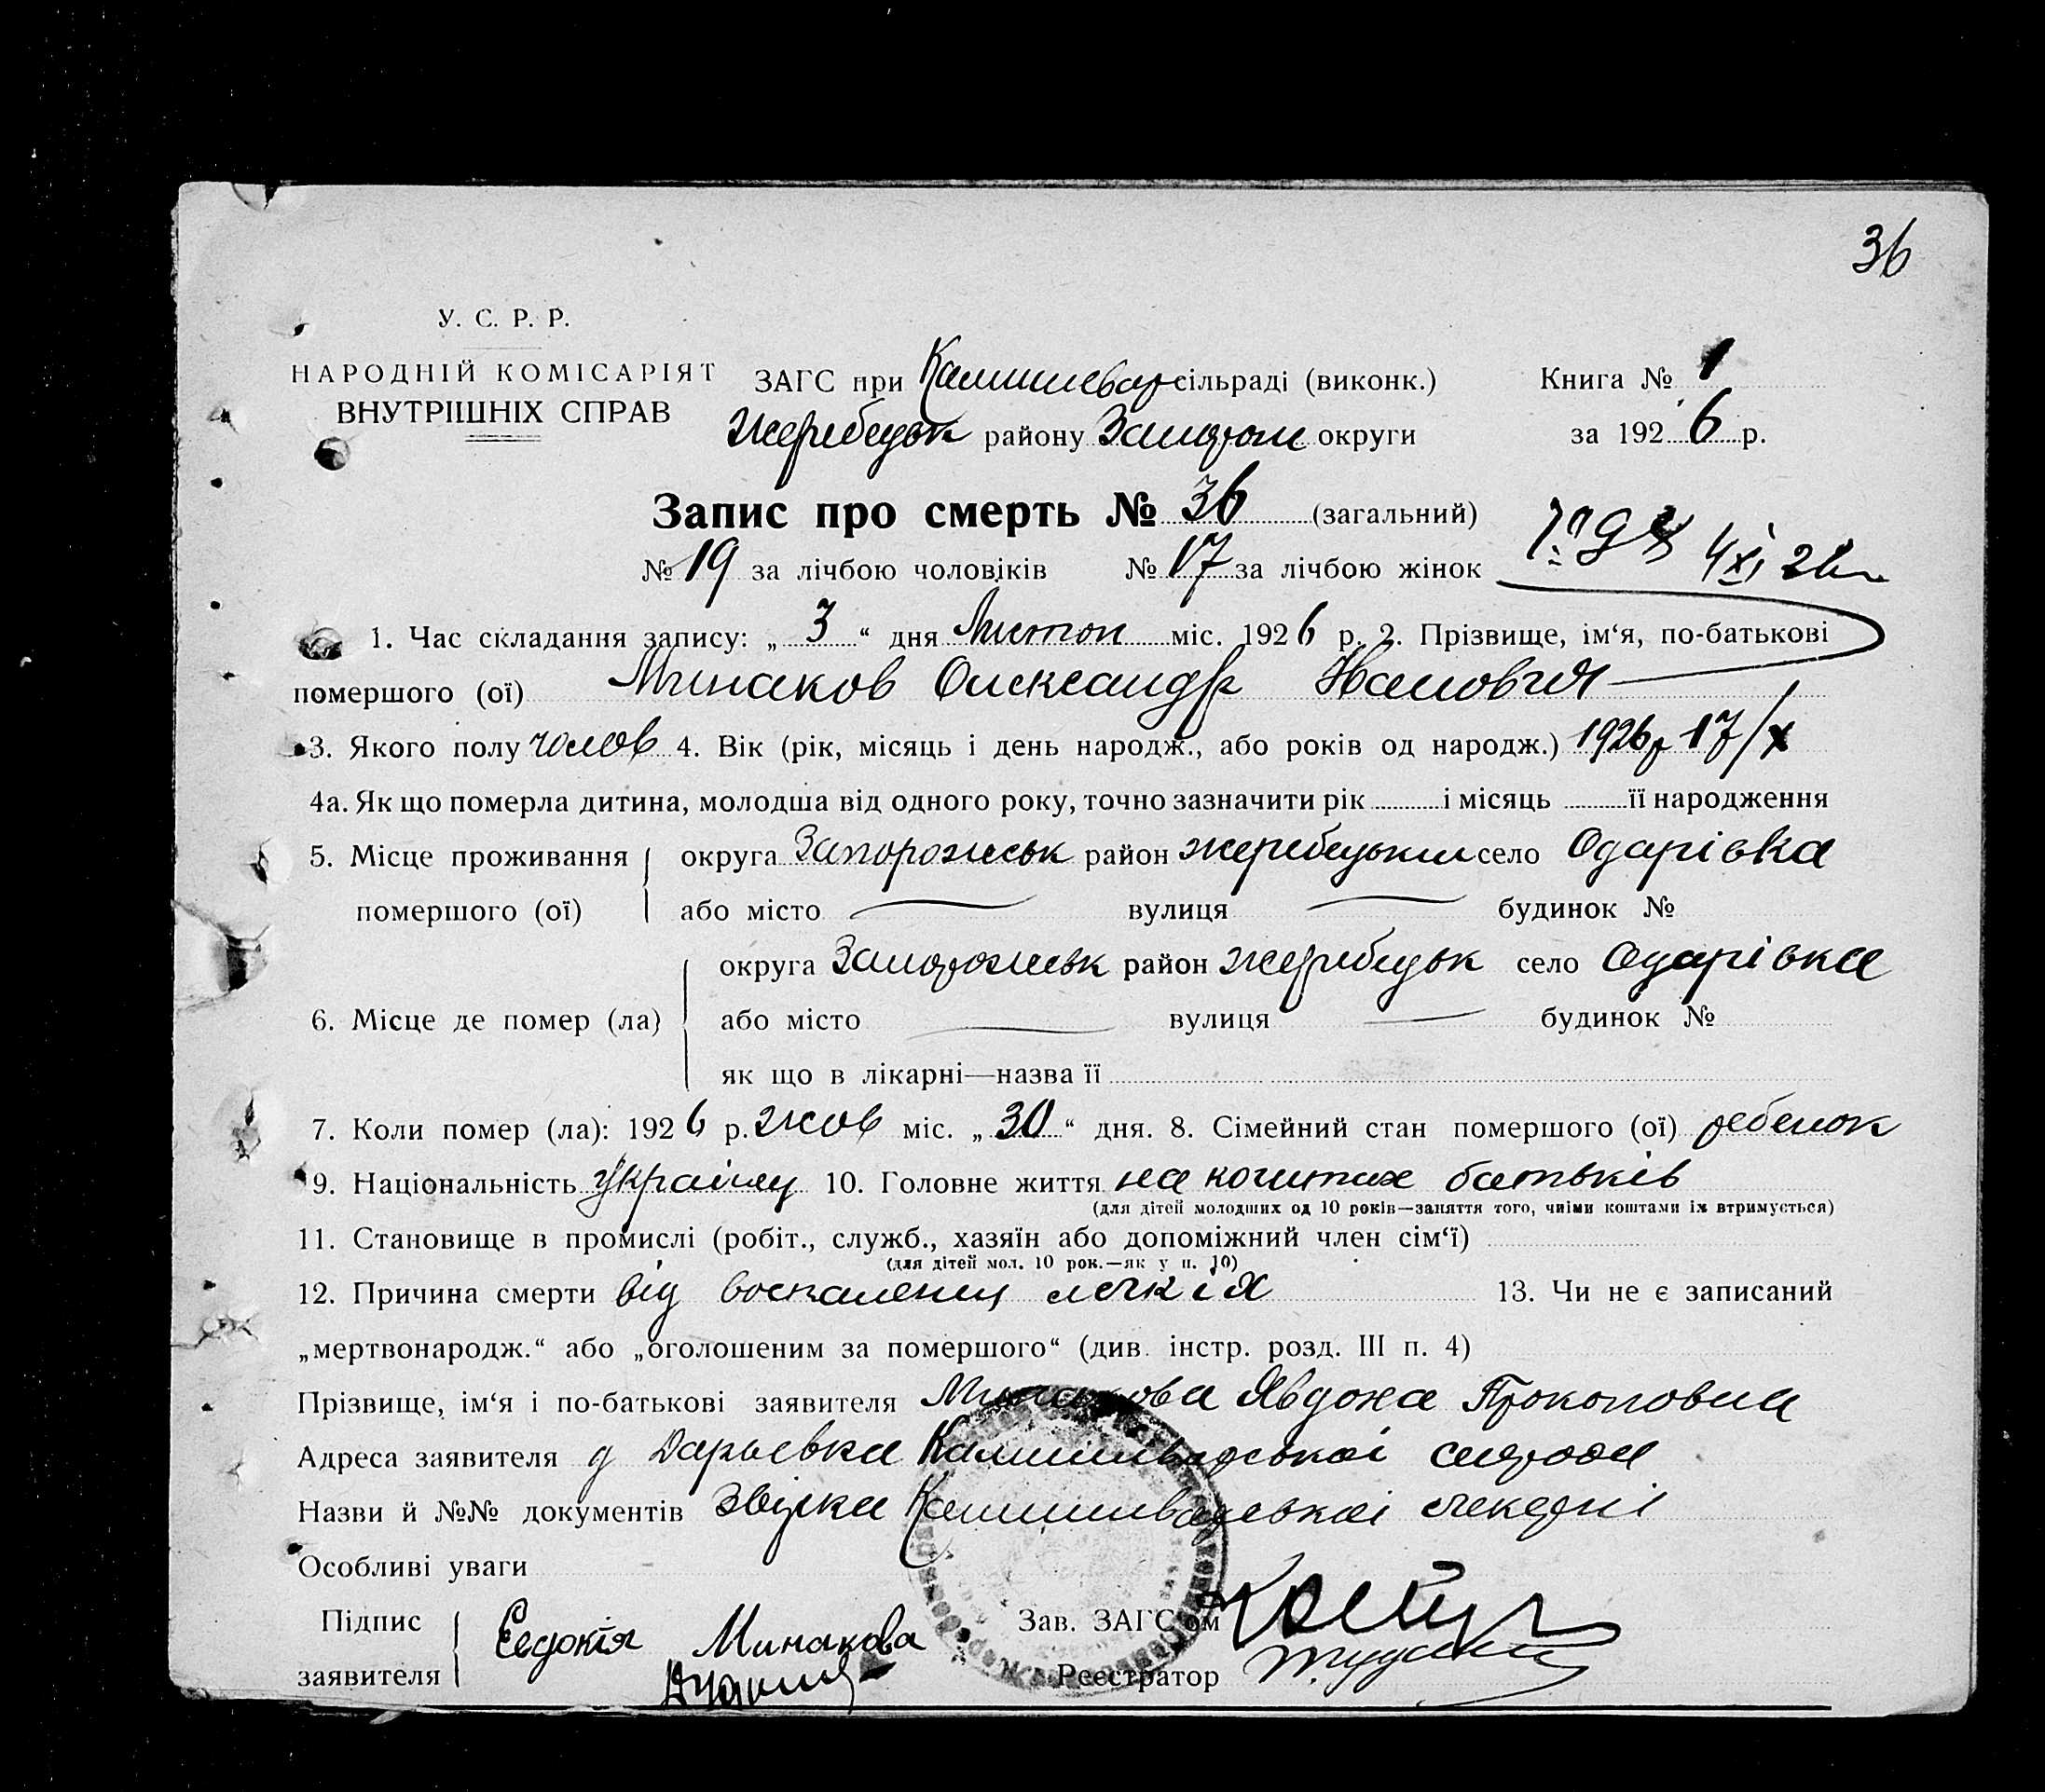 36
У. С. Р. Р.
НАРОДНІЙ КОМІСАРІЯТ
ВНУТРІШНІХ СПРАВ
ЗАГС при Камишевар сільраді (виконк.)
Жеребецьк району Запорож округи
Книга № 1
за 1926 р.
Запис про смерть № 36 (загальний)
№ 19 за лічбою чоловіків № 17 за лічбою жінок
4/XI 26
1. Час складання запису: „ 3 “ дня Листоп міс. 1926 р. 2. Прізвище, ім‘я, по-батькові
помершого (ої) Минаков Олександр Іванович
3. Якого полу чолов 4. Вік (рік, місяць і день народж., або років од народж.) 1926 р 17/X
4а. Як що померла дитина, молодша від одного року, точно зазначити рік і місяць її народження
5. Місце проживання округа Запорожськ район жеребецький село Одарівка
помершого (ої) або місто — вулиця — будинок №
округа Запорожськ район жеребецьк село Одарівка
6. Місце де помер (ла) або місто — вулиця — будинок №
як що в лікарні—назва її
7. Коли помер (ла): 1926 р. жов міс. „ 30 “ дня. 8. Сімейний стан помершого (ої) ребенок
9. Національність Україней 10. Головне життя на коштах батьків
(для дітей молодших од 10 років—заняття того, чиїми коштами їх втримується)
11. Становище в промислі (робіт., служб., хазяїн або допоміжний член сім‘ї)
(для дітей мол. 10 рок.—як у п. 10)
12. Причина смерти від воспаления легкіх 13. Чи не є записаний
„мертвонародж.“ або „оголошеним за помершого“ (див. інстр. розд. III п. 4)
Прізвище, ім‘я і по-батькові заявителя Минакова Явдоха Прокоповна
Адреса заявителя д Дарьевка Камишеварської
Назви й №№ документів Звізка Камишеварської
Особливі уваги
Підпис
заявителя Евдокія Минакова
Зав. ЗАГС‘ом
Реєстратор